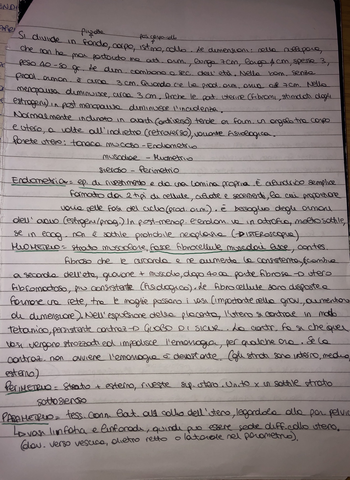 Si divide in fondo, corpo, istmo, collo. Le dimensioni: nella nullipara,
che non ha mai partorito ma att. ovar., lunga 7cm, larga 4cm, spess 3,
peso 40-50 gr. Le dim. cambiano a sec. dell'età. Nella bam. senza
prod. ormon. è circa 3cm. Quando c'è la prod. orm. arriva ad 7cm. Nella
menopausa diminuisce, circa 3 cm. Anche le pat. uterine (fibromi, stimolati dagli
estrogeni) in post menopausa diminuisce l'incidenza.
Normalmente inclinato in avanti (antiverso) tende a form. un angolo tra corpo
e utero, a volte all'indietro (retroverso), variante fisiologica.
Parete utero: tonaca mucosa - Endometrio
muscolare - Miometrio
sierosa - Perimetrio
Endometrio = ep. di rivestimento e da una lamina propria. È cilindrico semplice
formato da 2 tipi di cellule, ciliate e secernenti, la cui proporzione
varia nelle fasi del ciclo (prod. orm.). È bersaglio degli ormoni
dell'ovaio (estrogeni/prog.) In post-menop. l'endom. va in atrofia, molto sottile,
se in ecog. non è sottile probabile neoplasia (→ISTEROSCOPIA)
Miometrio = strato microfasc, fasce fibrocellule muscolari lisce, connet.
fibroso che le circonda e ne aumenta la consistenza, cambia
a seconda dell'età, giovane + muscolo, dopo 40 aa. parte fibrosa → utero
fibromatoso, più consistente (fisiologico). Le fibrocellule sono disposte a
formare una rete, tra le maglie passano i vasi (importante nella grav., aumentano
di dimensione). Nell'espulsione della placenta, l'utero si contrae in modo
tetanico, persistente contraz → GLOBO DI SICUR. La contr. fa si che quei
vasi vengano strozzati ed impedisce l'emorragia, per qualche ora. Se la
contraz. non avviene l'emorragia è devastante. (gli strati sono interno, medio,
esterno)
Perimetrio = strato + esterno, riveste sup. utero. Unito x un sottile strato
sottosieroso
Parametrio = tess. conn. lat. al collo dell'utero, legandola alla par. pelvica
Lo vasi linfatici e linfonodi, quindi può essere sede diff. collo utero,
(dav. verso vescica, dietro retto o lat. nel parametrio).